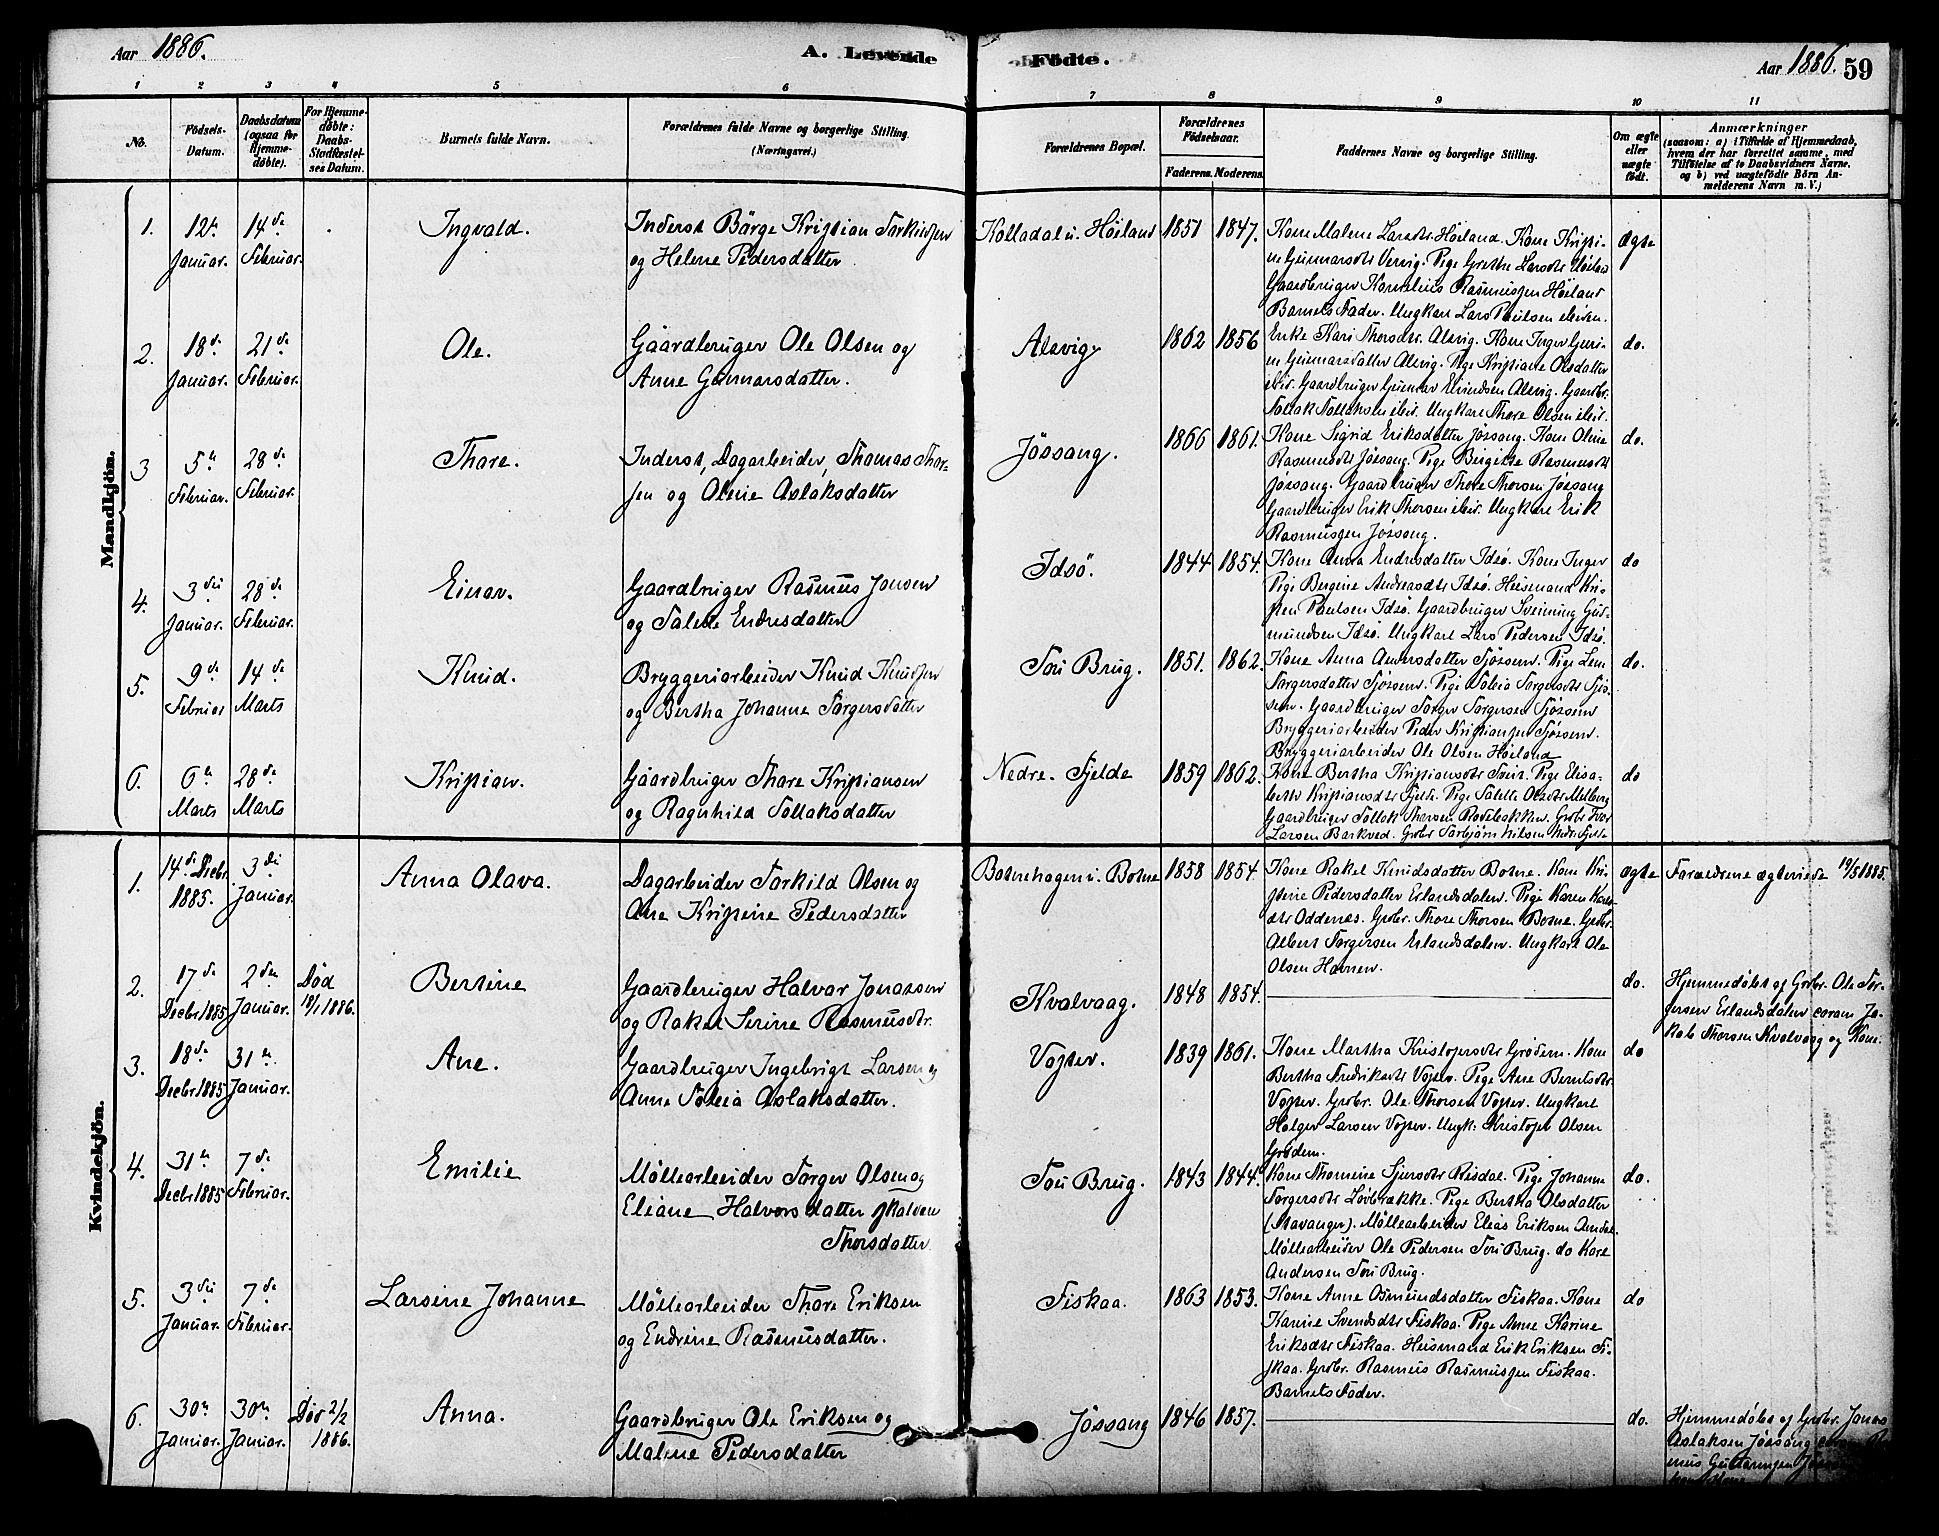 Aar 1886.
A. Levende
Fødte.
Aar 1886. 59
1 2 3 4 5 6 7 8 9 10 11
No.
Födsels-Datum.
Daabsdatum (ogsaa for Hjemmedöbte).
For Hjemmedöbte: Daabs-Stadfæstelses Datum.
Barnets fulde Navn.
Forældrenes fulde Navne og borgerlige Stilling.
(Næringsvei.)
Forældrenes Bopæl.
Forældrenes Födselsaar.
Faderens. Moderens.
Faddernes Navne og borgerlige Stilling.
Om ægte eller uægte födt.
Anmærkninger
(saasom: a) i Tilfælde af Hjemmedaab, hvem der har forrettet samme, med Tilföielse af to Daabsvidners Navne, og b) ved uægtefödte Börn Anmelderens Navn m. V.)
Mandkjön.
1. 12te Januar. 14de Februar. Ingvald.
Inderst Börge Kristian Torkildsen
og Helene Pedersdatter
Kolladal u. Höiland 1851 1847.
Kone Malene Larsdtr Höiland. Kone Kristi-
ne Gunnarsdtr Vervig. Pige Grethe Larsdtr Höiland
Gaardbruger Kornelius Rasmussen Höiland
Barnets Fader. Ungkarl Lars Paulsen ibiden.
Ægte
2. 18de Januar. 21de Februar. Ole.
Gaardbruger Ole Olsen og
Anne Gunnarsdatter.
Alsvig 1862 1856
Enke Kari Thorsdtr. Alsvig. Kone Inger Guri-
ne Gunnarsdatter Alsvig. Pige Kristiane Olsdatter
ibid. Gaardbruger Gunnar Eivindsen Alsvig. Gaardbr.
Tollak Tollaksen ibid. Ungkarl Thore Olsen ibid.
do.
3 5te Februar. 28de Februar. Thore.
Inderst, Dagarbeider, Thomas Thor-
sen og Oline Aslaksdatter
Jössang. 1866 1861.
Kone Sigrid Eriksdatter Jössang. Kone Oline
Rasmusdtr Jössang. Pige Birgitte Rasmusdtr
Jössang. Gaardbruger Thore Thorsen Jössang
Gaardbruger Erik Thorsen ibid. Ungkarl Erik
Rasmussen Jössang.
do.
4. 3die Januar. 28de Februar. Einar.
Gaardbruger Rasmus Jonsen
og Talene Endresdatter
Idsö. 1844 1854.
Kone Anna Endresdatter Idsö. Kone Inger
Pige Bergine Andreasdtr Idsö. Husmand Kri-
sten Paulsen Idsö. Gaardbruger Sveinung Gud-
mundsen Idsö. Ungkarl Lars Pedersen Idsö.
do
5. 9de Februar 14de Marts Knud.
Bryggeriarbeider Knud Knudsen
og Bertha Johanne Torgersdatter
Tou Brug. 1851. 1862.
Kone Anna
Torgersdatter Tjössem. Pige Talea Torgersdtr Tjös-
sem. Gaardbruger Torger Torgersen Tjössem
Bryggeriarbeider Peder Kristiansen Tjössem.
Bryggeriarbeider Ole Olsen Höiland
do.
6. 6te Marts 28de Marts Kristian.
Gaardbruger Thore Kristiansen
og Ragnhild Tollaksdatter
Nedre. Fjelde 1859 1862.
Kone Bertha Kristiansdtr Tveit. Pige Elisa-
beth Kristiansdtr Fjelde. Pige Talette Olsdtr Melberg
Gaardbruger Tollak Thorsen. Grdbr Ivar
Larsen Barkved. Grdbr Torbjörn Nilsen Nedr. Fjelde
do
Kvindekjön.
1. 14de Decbr 1885. 3die Januar. Anna Olava.
Dagarbeider Torkild Olsen og
Ane Kristine Pedersdatter
Botnehagen u. Botne 1858 1854.
Kone Rakel Knudsdatter Botne. Kone Kri-
stine Pedersdatter Erlandsdalen. Pige Karen
Oddenes. Grdbr. Thore Thorsen Botne. Grdbr.
Albert Torgersen Erlandsdalen. Ungkarl Ole
Olsen Havnen.
Ægte
Forældrene ægteviede 19/5 1885.
2. 17de Decbr 1885 2den Januar. Död 18/1 1886. Bertine
Gaardbruger Halvor Jonassen
og Rakel Serine Rasmusdtr.
Kvalvaag. 1848 1854.
do.
Hjemmedöbt af Grdbr. Ole Tor-
gersen Erlandsdalen coram Ja-
kob Thorsen Kvalvaag og Kone.
3. 18de Decbr 1885 31te Januar. Ane.
Gaardbruger Ingebrigt Larsen og
Anne Talea Aslaksdatter.
Vosten. 1839 1861.
Kone Martha Kristofersdtr Grödem. Kone
Bertha Fredriksdtr Vosten. Pige Ane Berntsdtr
Vosten. Grdbr. Ole Thorsen Vosten. Ungkarl
Holger Larsen Vosten. Ungk: Kristofer Olsen
Grödem.
do
4. 31te Decbr 1885 7de Februar. Emilie
Möllearbeider Torger Olsen og
Eliane Halvorsdatter
Thorsdatter.
Tou Brug. 1843 1844.
Kone Thomine Sjursdtr Risdal. Pige Johanne
Torgersdtr Lövbrække. Pige Bertha Olsdatter
(Stavanger). Möllearbeider Elias Eriksen Amdal
Möllearbeider Ole Pedersen Tou Brug. do Karl
Andersen Tou Brug.
do.
5. 3die Januar. 7de Februar. Larsine Johanne
Möllearbeider Thore Eriksen
og Endrine Rasmusdatter.
Fiskaa. 1863 1853.
Kone Anne Osmundsdatter Fiskaa. Kone
Karine Svendsdtr Fiskaa. Pige Anne Karine
Eriksdtr Fiskaa. Husmand Erik Eriksen Fi-
skaa. Grdbr. Rasmus Rasmussen Fiskaa.
Barnets Fader.
do
6. 30te Januar. 30te Januar. Död 2/2 1886. Anna.
Gaardbruger Ole Eriksen og
Malene Pedersdatter
Jössang 1846 1857.
do.
Hjemmedöbt af Grdbr. Jonas
Aslaksen Jössang coram Ras-
mus Guttormsen Jössang